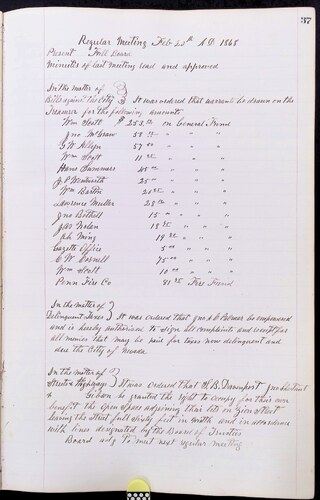 37
Regular Meeting Feb 22th A.D. 1868
Present Full Board
Minutes of last Meeting read and approved
In the matter of
Bills against the City } It was ordered that warrants be drawn on the
Treasurer for the following amounts.
Wm Scott $ 253 on General Fund
Jno McCraw 55 " " "
G W 57 " " "
Wm 11 " " "
Hans Summers 45 " " "
J P Wentworth 25 " " "
Wm Barton " " "
Lawrence Muller " " "
Jno Bothell 15 " " "
Jas Nolan 18 " " "
Ah Ming 19 " " "
Gazette Office 5 " " "
C W Cornell 75 " " "
Wm Scott 10 " " "
Penn Fire Co Fire Fund
In the matter of
Delinquent Taxes } It was ordered that Jno be empowered
and is hereby authorized to sign all complaints and receipt for
all monies that may be paid for taxes now delinquent and
due the City of Nevada
In the matter of
Streets & Highways } It was ordered that H B Davenport Jno
& Gibson be granted the right to occupy for their own
benefit the open space adjoining their lots on Zion Street
leaving the Street full sixty feet in width and in accordance
with lines designated by the Board of Trustees
Board adj to meet next regular meeting